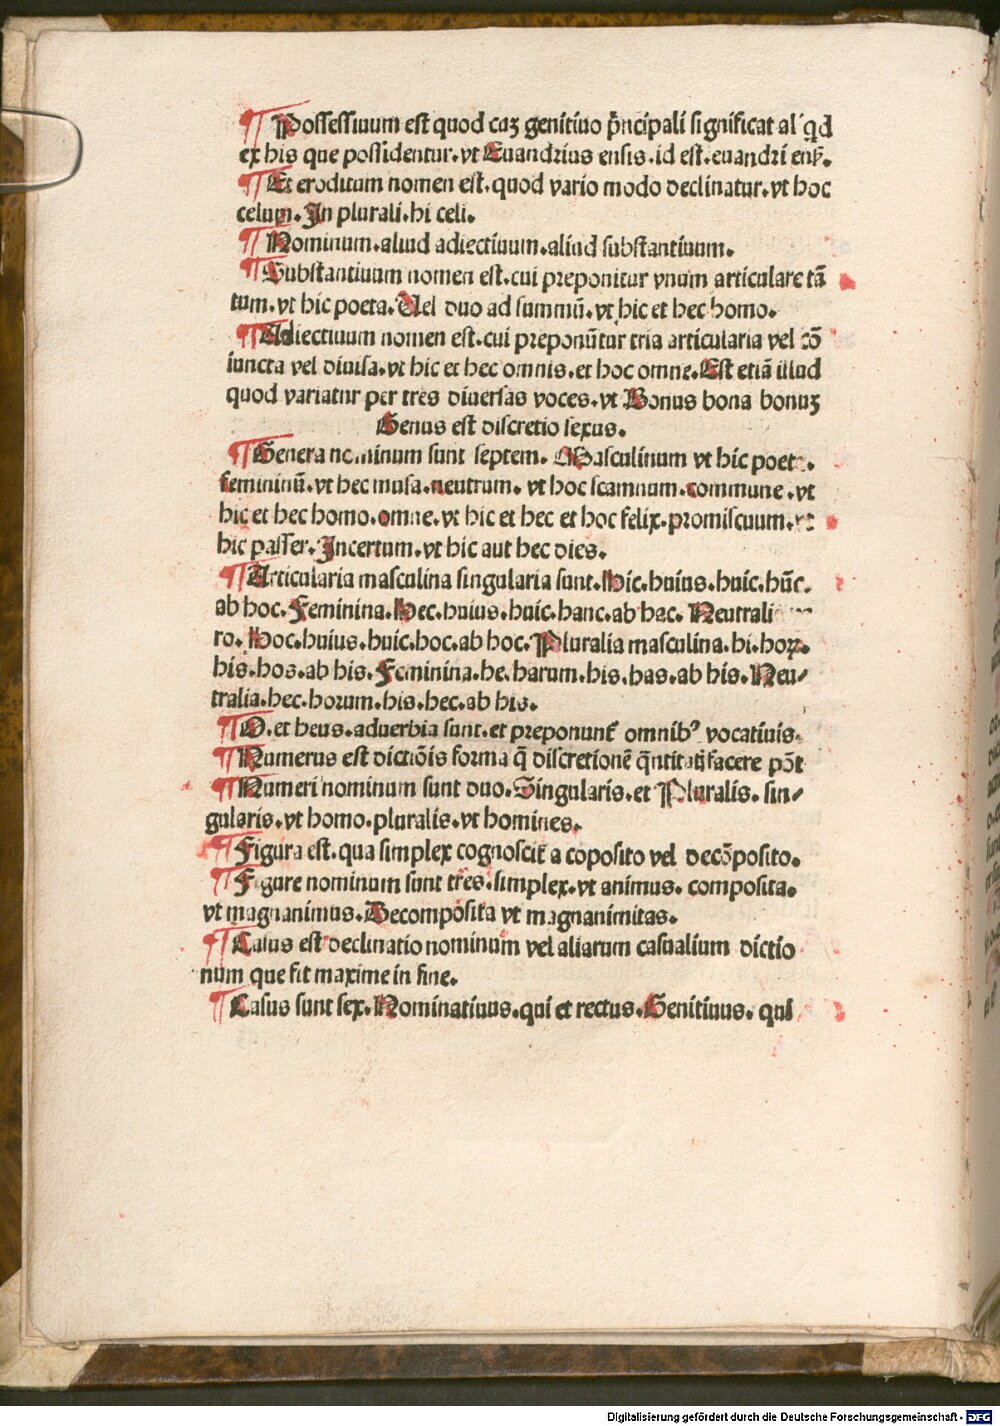 ¶ Possessiuum est quod cuꝫ genitiuo p̃ncipali significat al'qd
ex his que possidentur. vt Euandrius ensis. id est. euandri enẜ.
¶ Et eroditum nomen est. quod vario modo declinatur. vt hoc
celum. In plurali. hi celi.
¶ Nominum. aliud adiectiuum. aliud substantiuum.
¶ Substantiuum nomen est. cui preponitur vnum articulare tā
tum. vt hic poeta. Uel duo ad summū. vt hic et hec homo.
¶ Adiectiuum nomen est. cui preponūtur tria articularia vel cō
iuncta vel diuisa. vt hic et hec omnis. et hoc omne. Est etiā illud
quod variatur per tres diuersas voces. vt Bonus bona bonuꝫ
Genus est discretio sexus.
¶ Genera nominum sunt septem. Masculinum vt hic poeta.
femininū. vt hec musa. neutrum. vt hoc scamnum. commune. vt
hic et hec homo. omne. vt hic et hec et hoc felix. promiscuum. vt
hic passer. Incertum. vt hic aut hec dies.
¶ Articularia masculina singularia sunt. Hic. huius. huic. hūc.
ab hoc. Feminina. Hec. huius. huic. hanc. ab hac. Neutrali
ro. Hoc. huius. huic. hoc. ab hoc. Pluralia masculina. hi. hoꝝ.
his. hos. ab his. Feminina. he. harum. his. has. ab his. Neu/
tralia. hec. horum. his. hec. ab his.
¶ O. et heus. aduerbia sunt. et preponunt̄ omnibꝰ vocatiuis.
¶ Numerus est dictiōis forma q̄ discretionē q̄ntitatis facere pōt
¶ Numeri nominum sunt duo. Singularis. et Pluralis. sin/
gularis. vt homo. pluralis. vt homines.
¶ Figura est. qua simplex cognoscit̄ a coposito vel decōposito.
¶ Figure nominum sunt tres. simplex. vt animus. composita.
vt magnanimus. Decomposita vt magnanimitas.
¶ Casus est declinatio nominum vel aliarum casualium dictio
num que fit maxime in fine.
¶ Casus sunt sex. Nominatiuus. qui et rectus. Genitiuus. qui
Digitalisierung gefördert durch die Deutsche Forschungsgemeinschaft - DFG